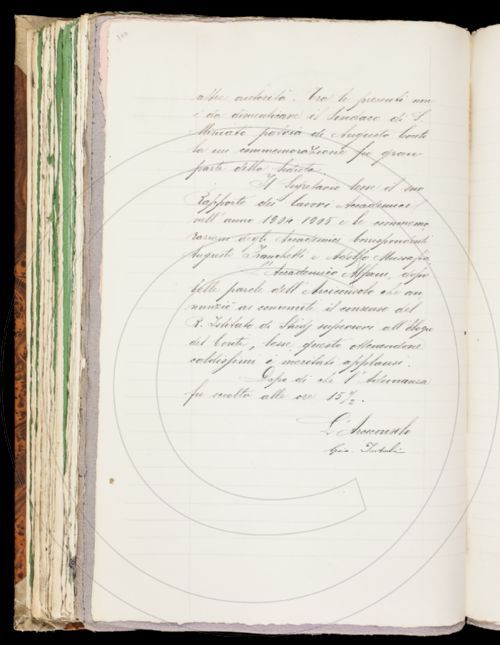 altre autorità. Tra le presenti non
è da dimenticare il Sindaco di S.
Miniato patria di Augusto Conti
la cui commemorazione fu gran
parte della seduta.
Il Segretario lesse il suo
Rapporto dei lavori Accademici
nell'anno 1904 1905 e le commemo
razioni degli Accademici Corrispondenti
Augusto Franchetti e Adolfo Mussafia
L'Accademico Alfani, dopo
delle parole dell'Arciconsolo che an
nunziò ai convenuti il consenso del
R. Istituto di Studj superiori all'Elogio
del Conti, lesse questo ottenendone
caldissimi e meritati applausi.
Dopo di che l'Adunanza
fu sciolta alle ore 15 1/2.
L'Arciconsolo